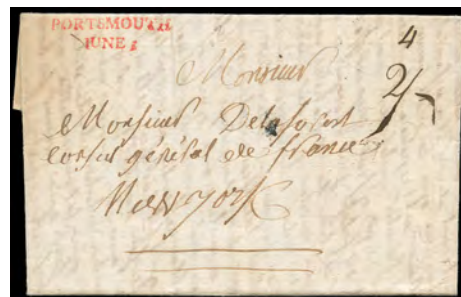 PORTSMOUTH
IUNE
4
2/-
Monsieur
Monsieur Delaforest
Consul général de france
New york